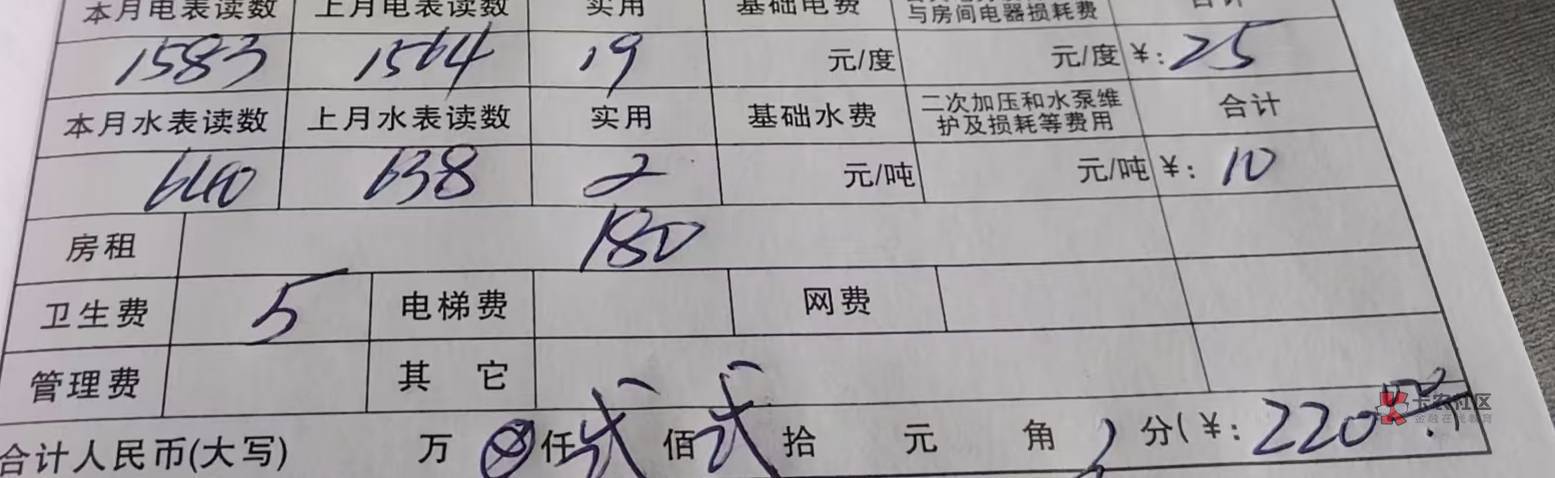 本月电表读数 上月电表读数 实用 基础电费 与房间电器损耗费 合计
1583 1564 19 元/度 元/度 ¥: 25
本月水表读数 上月水表读数 实用 基础水费 二次加压和水泵维护及损耗等费用 合计
640 638 2 元/吨 元/吨 ¥: 10
房租 180
卫生费 5 电梯费 网费
管理费 其它
合计人民币(大写) 万 仟 弍 佰 弍 拾 元 角 分(¥: 220
卡农社区
金融在线教育